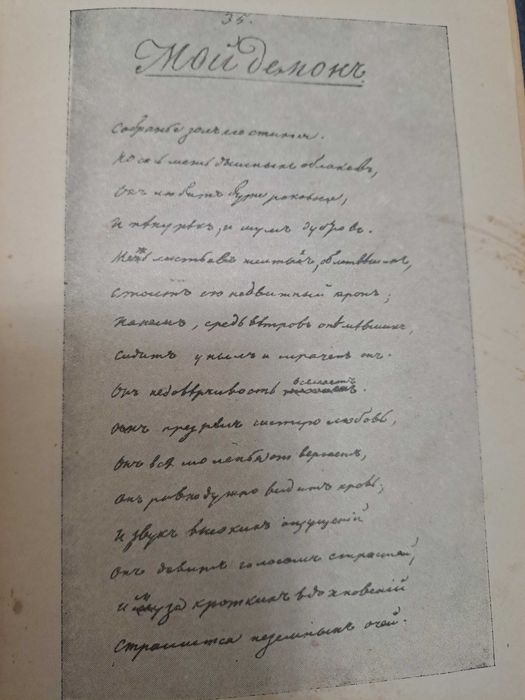 35.
Мой демонъ
Собранье золъ его стихія.
Носясь межъ дымныхъ облаковъ,
Онъ любитъ бури роковыя,
И пѣну рѣкъ, и шумъ дубровъ.
Межъ листьевъ желтыхъ, облетѣвшихъ,
Стоитъ его недвижный тронъ;
На немъ, средь вѣтровъ онѣмѣвшихъ,
Сидитъ унылъ и мраченъ онъ.
Онъ недовѣрчивость вселяетъ.
Онъ презрѣлъ чистую любовь,
Онъ всѣ моленья отвергаетъ,
Онъ равнодушно видитъ кровь;
И звукъ высокихъ ощущеній
Онъ давитъ голосомъ страстей,
И муза кроткихъ вдохновеній
Страшится неземныхъ очей.